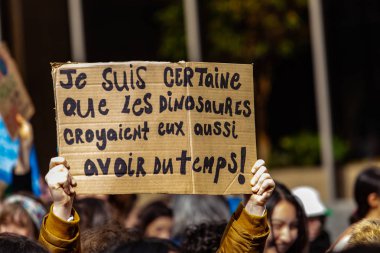 Je suis certaine
que les dinosaures
croyaient eux aussi
avoir du temps!